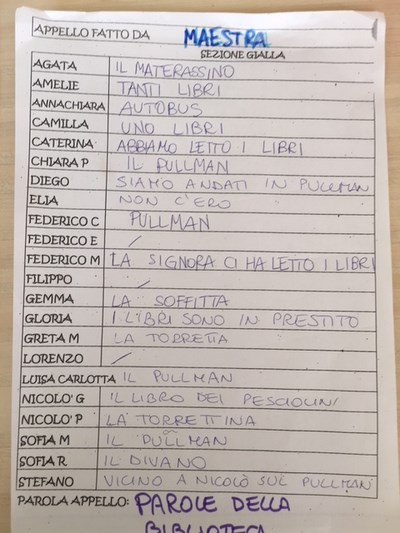 APPELLO FATTO DA MAESTRA
SEZIONE GIALLA
AGATA IL MATERASSINO
AMELIE TANTI LIBRI
ANNACHIARA AUTOBUS
CAMILLA UNO LIBRI
CATERINA ABBIAMO LETTO I LIBRI
CHIARA P IL PULLMAN
DIEGO SIAMO ANDATI IN PULLMAN
ELIA NON C'ERO
FEDERICO C PULLMAN
FEDERICO E /
FEDERICO M LA SIGNORA CI HA LETTO I LIBRI
FILIPPO /
GEMMA LA SOFFITTA
GLORIA I LIBRI SONO IN PRESTITO
GRETA M LA TORRETTA
LORENZO /
LUISA CARLOTTA IL PULLMAN
NICOLO' G IL LIBRO DEI PESCIOLINI
NICOLO' P LA TORRETTINA
SOFIA M IL PULLMAN
SOFIA R IL DIVANO
STEFANO VICINO A NICOLÒ SUL PULLMAN
PAROLA APPELLO: PAROLE DELLA
BIBLIOTECA